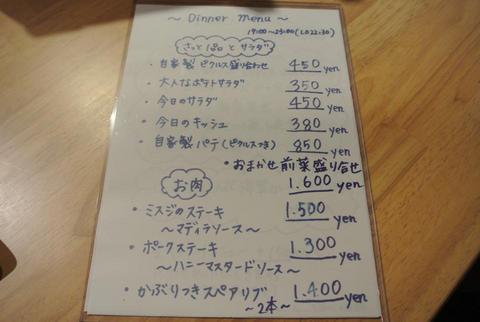 ～ Dinner menu ～
17:00～23:00 (L.O 22:30)
さっと1品とサラダ
・自家製 ピクルス盛り合わせ 450 yen
・大人なポテトサラダ 350 yen
・今日のサラダ 450 yen
・今日のキッシュ 380 yen
・自家製 パテ (ピクルスつき) 850 yen
・おまかせ前菜盛り合せ
1.600 yen
お肉
・ミスジのステーキ 1.500 yen
～マディラソース～
・ポークステーキ 1.300 yen
～ハニーマスタードソース～
・かぶりつきスペアリブ 1.400 yen
～2本～